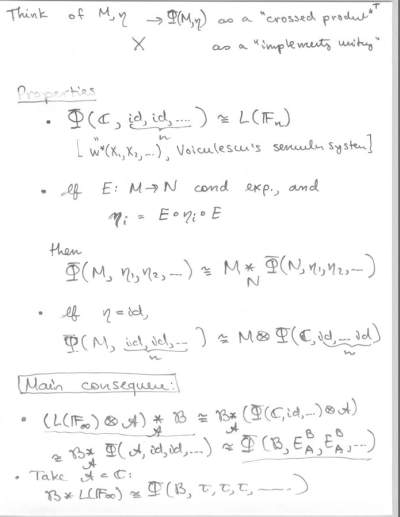 Think of M,η → Φ(M,η) as a "crossed product"
X as a "implementing unitary"
Properties
• Φ(ℂ, id, id, ....) ≅ L(𝔽ₙ)
n
[ W*(X₁,X₂,...), Voiculescu's semicircular system]
• If E: M→N cond exp., and
ηᵢ = E∘ηᵢ∘E
then
Φ(M, η₁,η₂,...) ≅ M *_N Φ(N,η₁,η₂,...)
• If η=id,
Φ(M, id,id,...) ≅ M⊗Φ(ℂ,id,...id)
n n
Main consequence:
• (L(𝔽∞)⊗A) *_A B ≅ B *_A (Φ(ℂ,id,...)⊗A)
≅ B *_A Φ(A,id,id,...) ≅ Φ(B, E_A^B, E_A^B,...)
• Take A=ℂ:
B * L(𝔽∞) ≅ Φ(B, τ,τ,τ,.....)